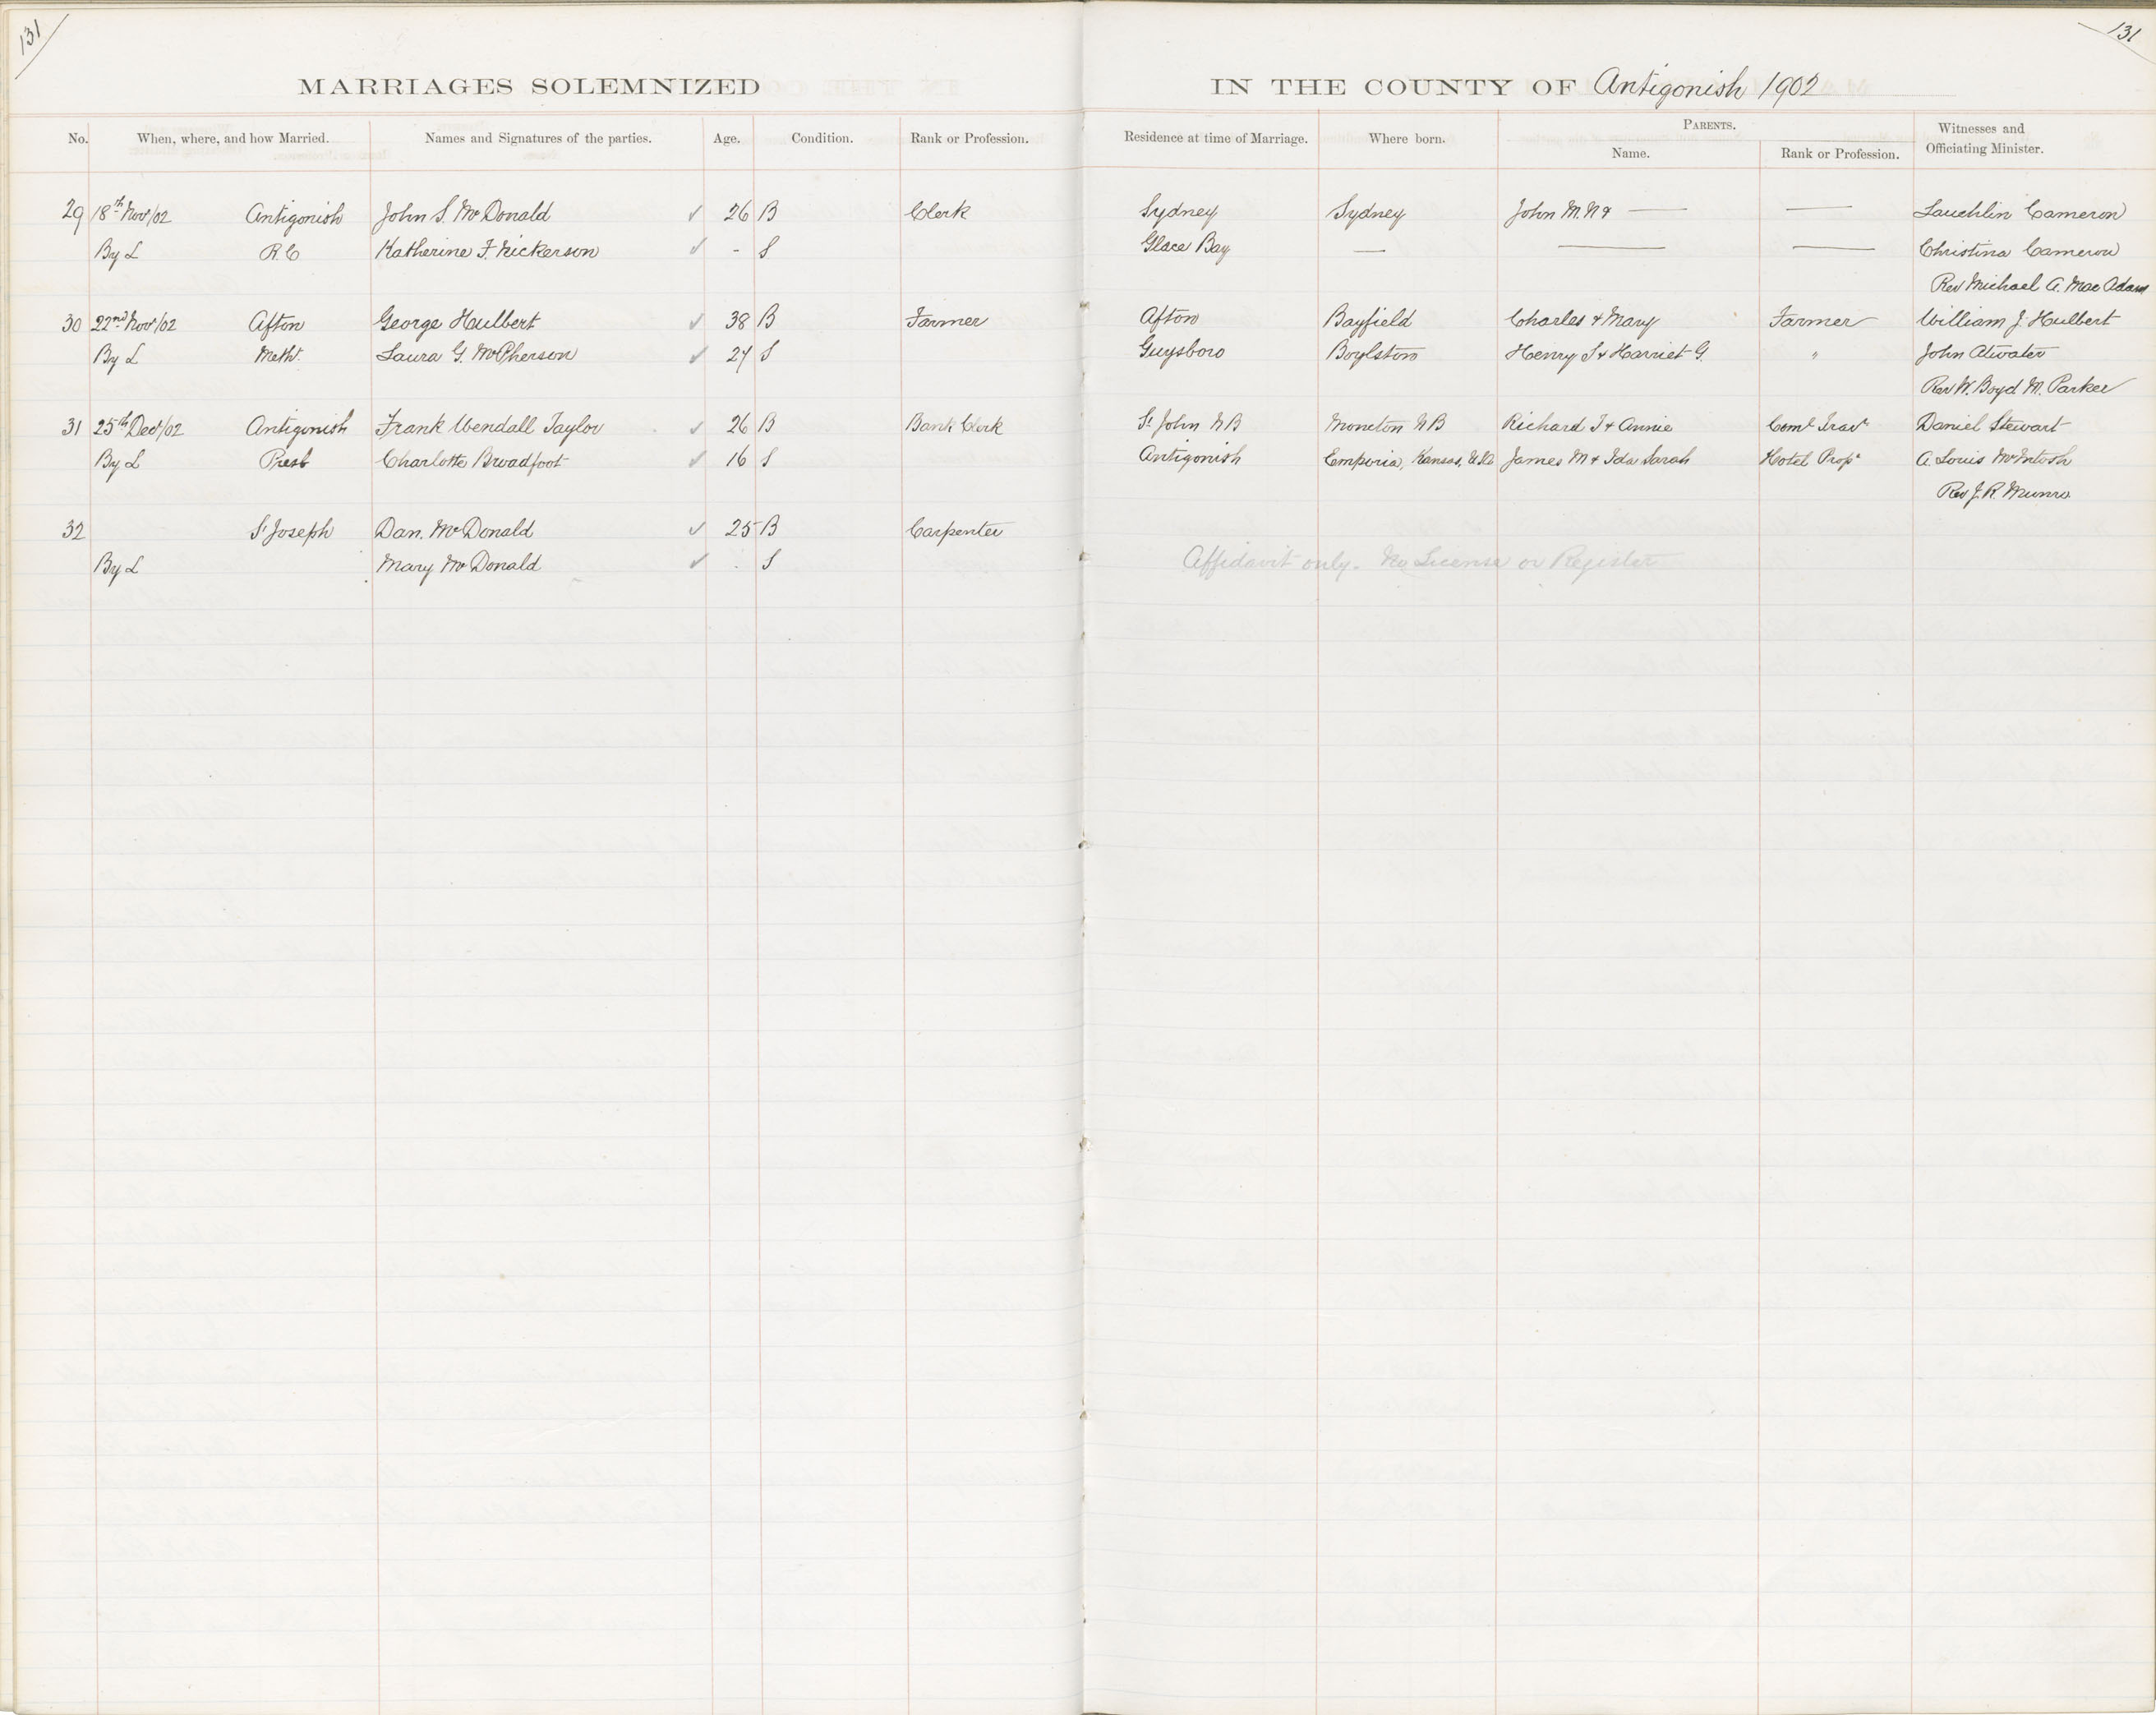 131
131
MARRIAGES SOLEMNIZED IN THE COUNTY OF Antigonish 1902
No. When, where, and how Married. Names and Signatures of the parties. Age. Condition. Rank or Profession. Residence at time of Marriage. Where born. PARENTS. Name. Rank or Profession. Witnesses and Officiating Minister.
29 18th Nov/02 Antigonish John S. McDonald ✓ 26 B Clerk Sydney Sydney John M. & — — Lauchlin Cameron
By L R.C Katherine F. Nickerson ✓ - S Glace Bay — — — Christina Cameron
Rev Michael A. MacAdam
30 22nd Nov/02 Afton George Hulbert ✓ 38 B Farmer Afton Bayfield Charles & Mary Farmer William J. Hulbert
By L Meth. Laura G. McPherson ✓ 24 S Guysboro Boylston Henry S & Harriet G. " John Atwater
Rev W. Boyd M. Parker
31 25th Dec/02 Antigonish Frank Wendall Taylor ✓ 26 B Bank Clerk St John NB Moncton NB Richard T & Annie Coml Travr Daniel Stewart
By L Presb Charlotte Broadfoot ✓ 16 S Antigonish Emporia, Kansas, James M & Ida Sarah Hotel Propr A. Louis McIntosh
Rev J. R. Munro
32 St Joseph Dan. McDonald ✓ 25 B Carpenter
By L Mary McDonald ✓ . S Affidavit only. No License or Register